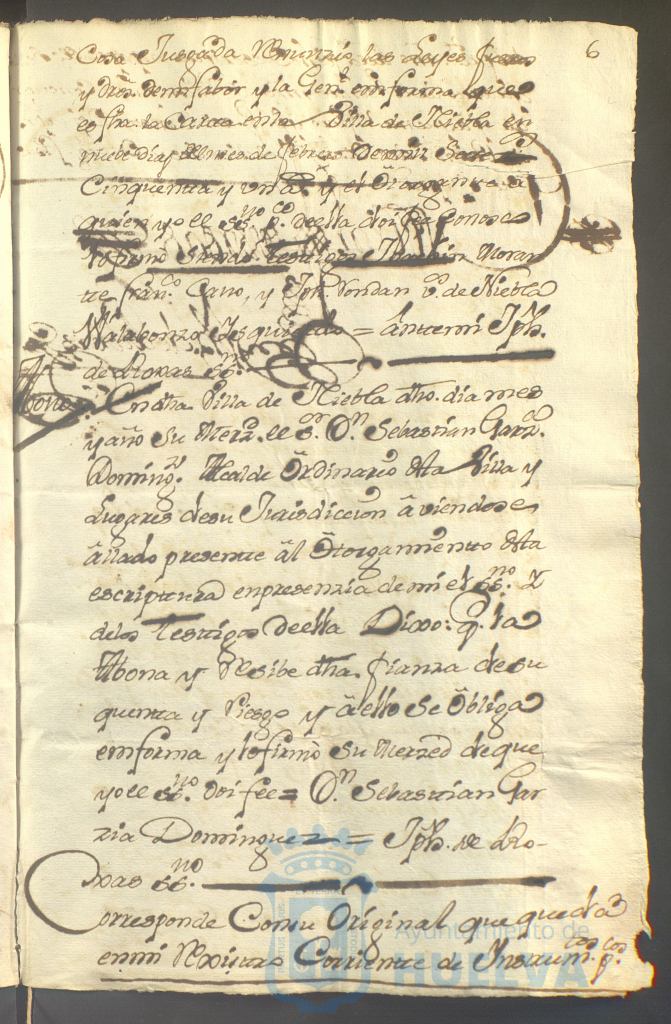 6
Cosa Jusgada Renunzio las Leyes fueros
y dros. de mi fabor y la Genl. en forma que es
es fha. la Carta en la Villa de Niebla en
nuebe dias del mes de febrero de mil Setezs.
Cinquenta y un a. y el Otorgante a
quien yo el ssno. pco. de ella doi fee conosco
lo firmo siendo testigos Moran
te franco. Cano, y Jph. Roldan vos. de Niebla
Walabonzo Izquierdo = Antemi Jph.
de Roxas ssno.
Abono
En dha. Villa de Niebla dho. dia mes
y año Su Merzd. el Sor. Dn. Sebastian Garza.
Domingz. Alcalde Ordinario desta Villa y
Lugares de su Jurisdiccion aviendose
allado presente al Otorgamiento desta
escriptura en presenzia de mi el ssno. y
de los testigos de ella Dixo: q. la
Abona y Resibe dha. fianza de su
quenta y Riesgo y a ello se Obliga
en forma y lo firmo su Merzed de que
yo el ssno. doi fee = Dn. Sebastian Gar
zia Dominguez = Jph. de Ro-
xas ssno.
Corresponde Con su Original que queda
en mi Rexistro Corriente de Instrumtos. pcos.
Ayuntamiento de
HUELVA